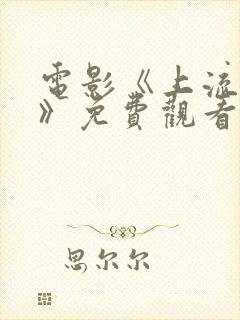 電影《上流
》免費觀看
思尔尔